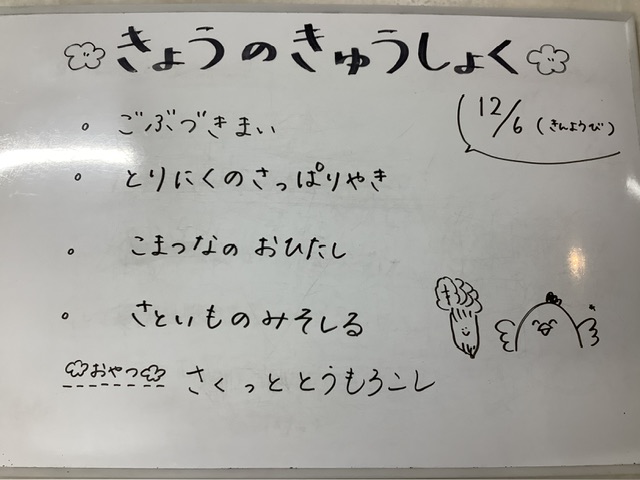 きょうのきゅうしょく
12/6(きんようび)
。ごぶづきまい
。とりにくのさっぱりやき
。こまつなのおひたし
。さといものみそしる
おやつ さくっととうもろこし